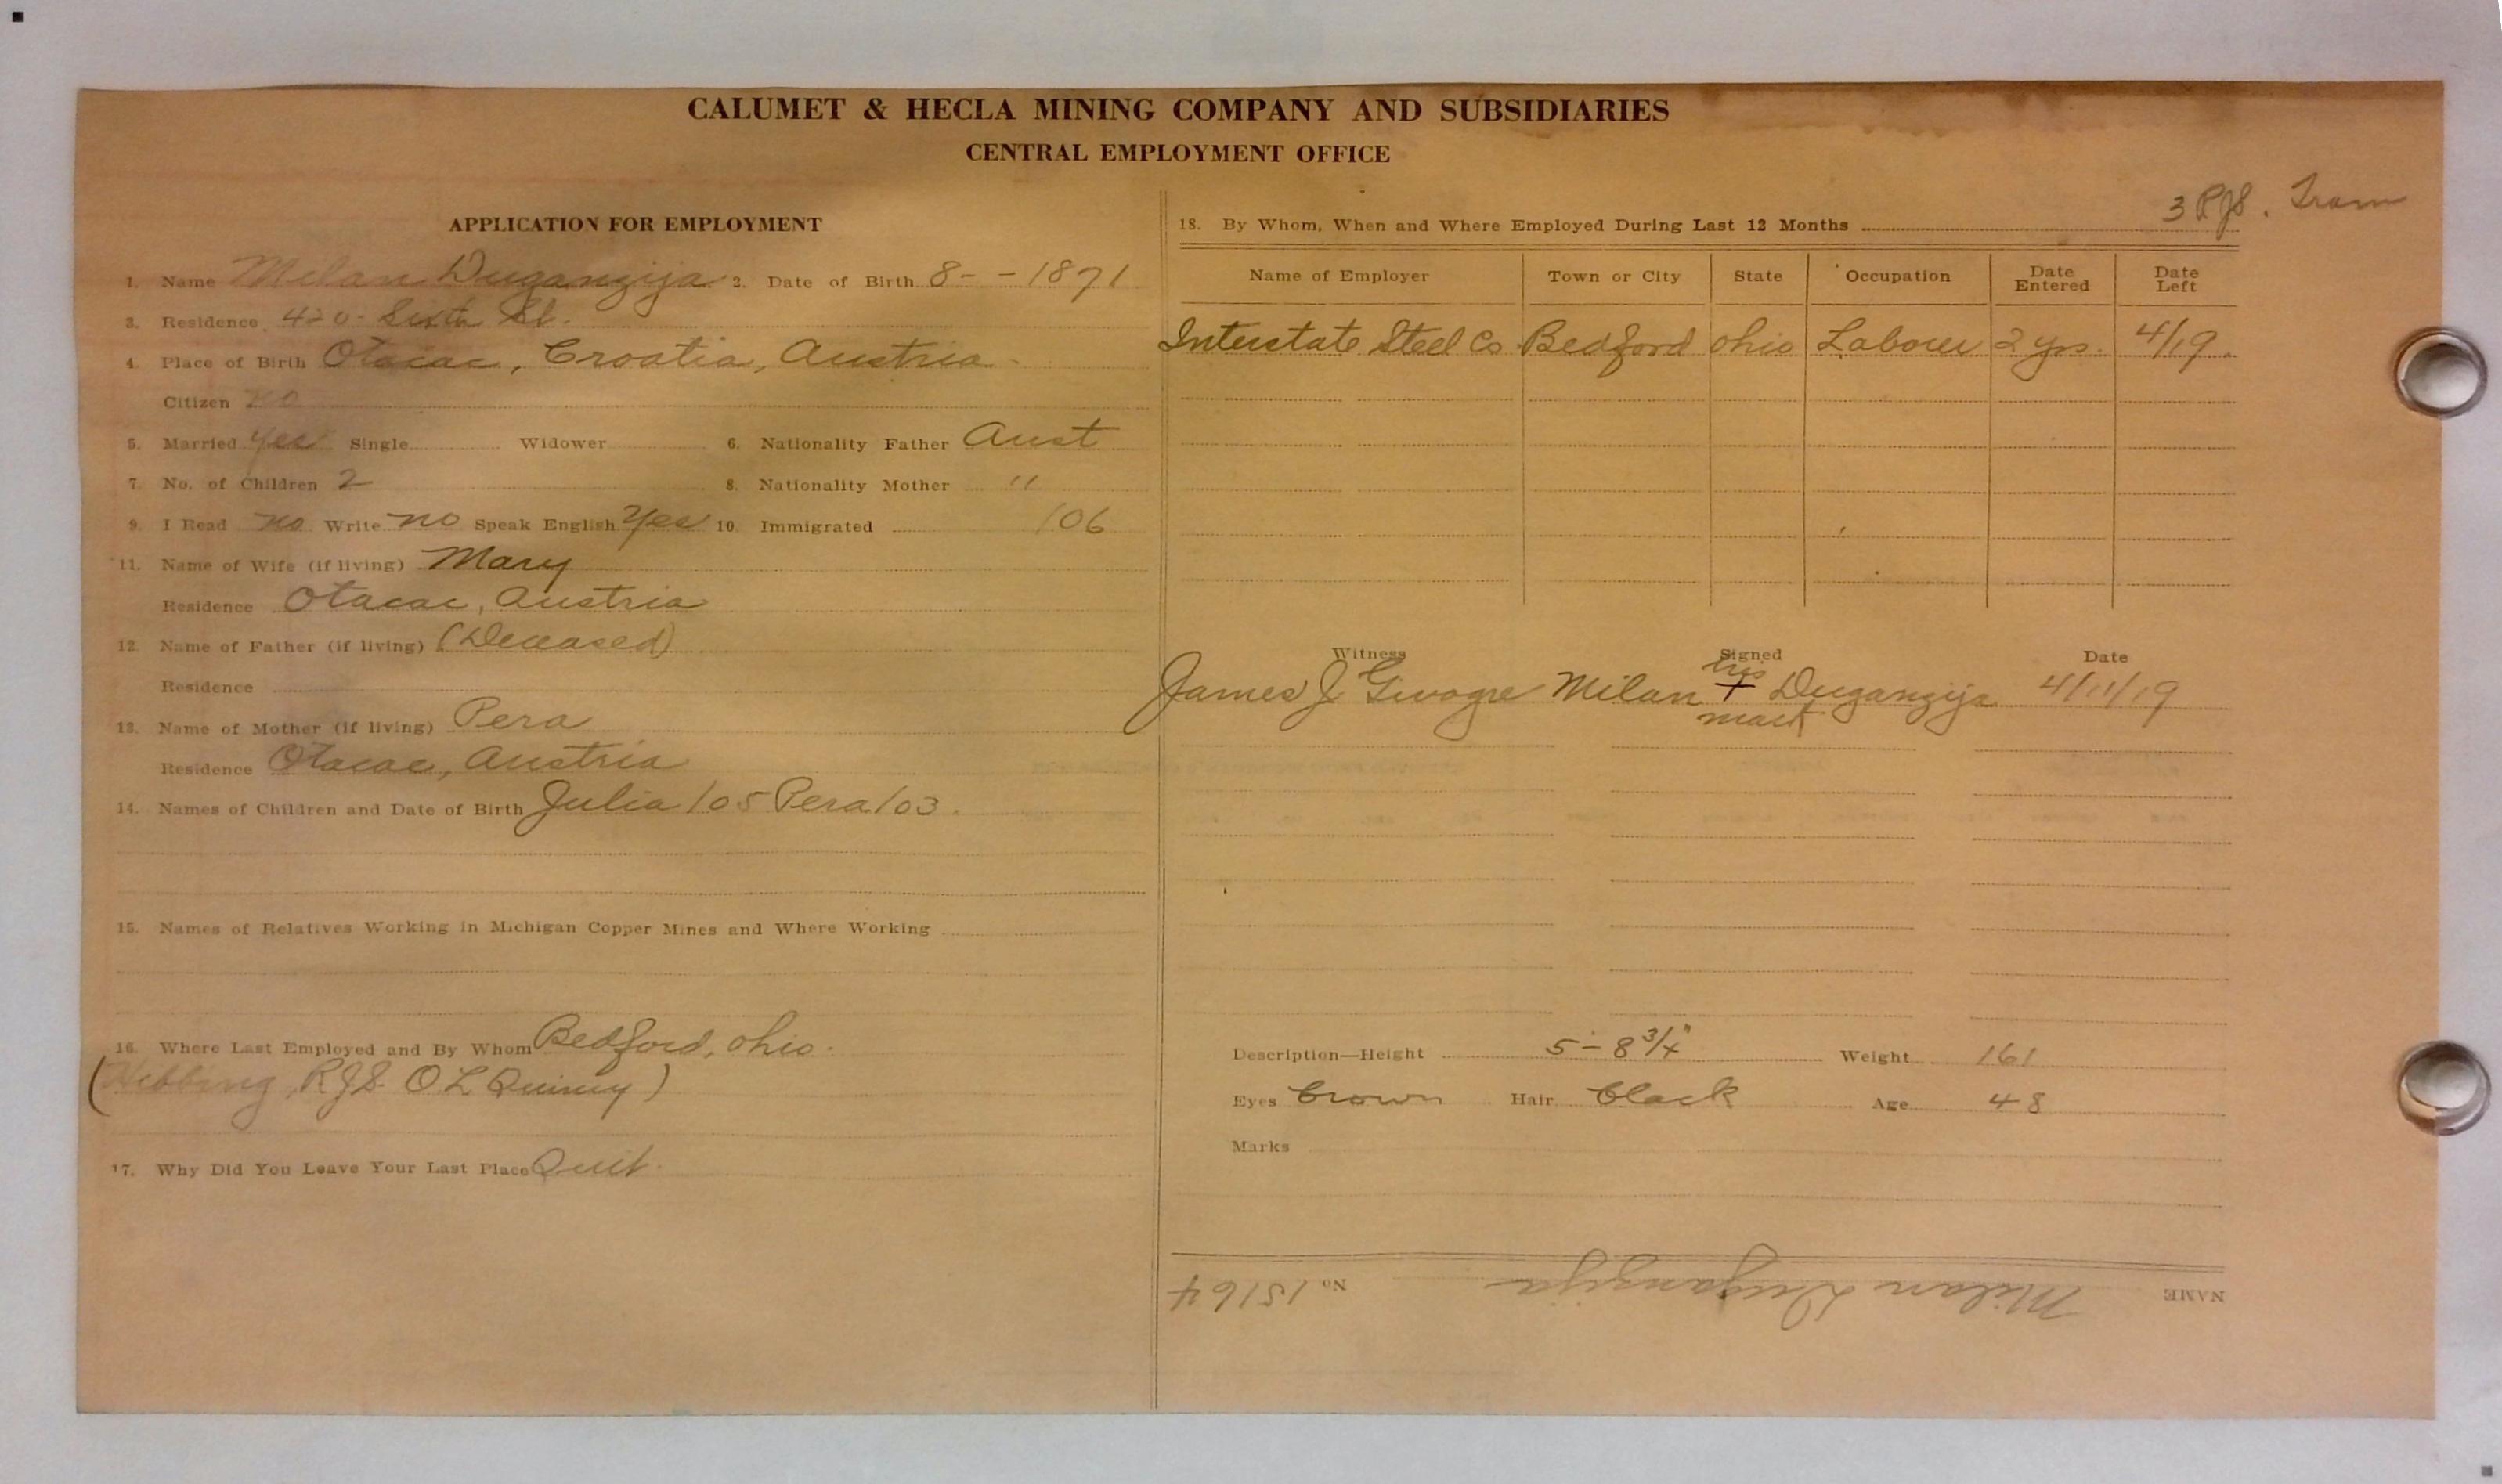 CALUMET & HECLA MINING COMPANY AND SUBSIDIARIES
CENTRAL EMPLOYMENT OFFICE
APPLICATION FOR EMPLOYMENT
1. Name Milan Duganzija 2. Date of Birth 8- - 1871
3. Residence 420 - Sixth St.
4. Place of Birth Otacac, Croatia, Austria
Citizen no
5. Married yes Single Widower 6. Nationality Father Aust
7. No. of Children 2 8. Nationality Mother "
9. I Read no Write no Speak English Yes 10. Immigrated /06
11. Name of Wife (if living) Mary
Residence Otacac, Austria
12. Name of Father (if living) (Deceased)
Residence
13. Name of Mother (if living) Pera
Residence Otacac, Austria
14. Names of Children and Date of Birth Julia /05 Pera /03.
15. Names of Relatives Working in Michigan Copper Mines and Where Working
16. Where Last Employed and By Whom Bedford, Ohio.
RJS. O L Quincy)
17. Why Did You Leave Your Last Place Quit.
3 RJS. Tram
18. By Whom, When and Where Employed During Last 12 Months
Name of Employer Town or City State Occupation Date Entered Date Left
Interstate Steel Co. Bedford Ohio Laborer 2 yrs. 4/19.
Witness Signed Date
James J Milan his + mark Duganzija 4/11/19
Description—Height 5-8 3/4" Weight 161
Eyes brown Hair black Age 48
Marks
NAME Milan Duganzija No 15164